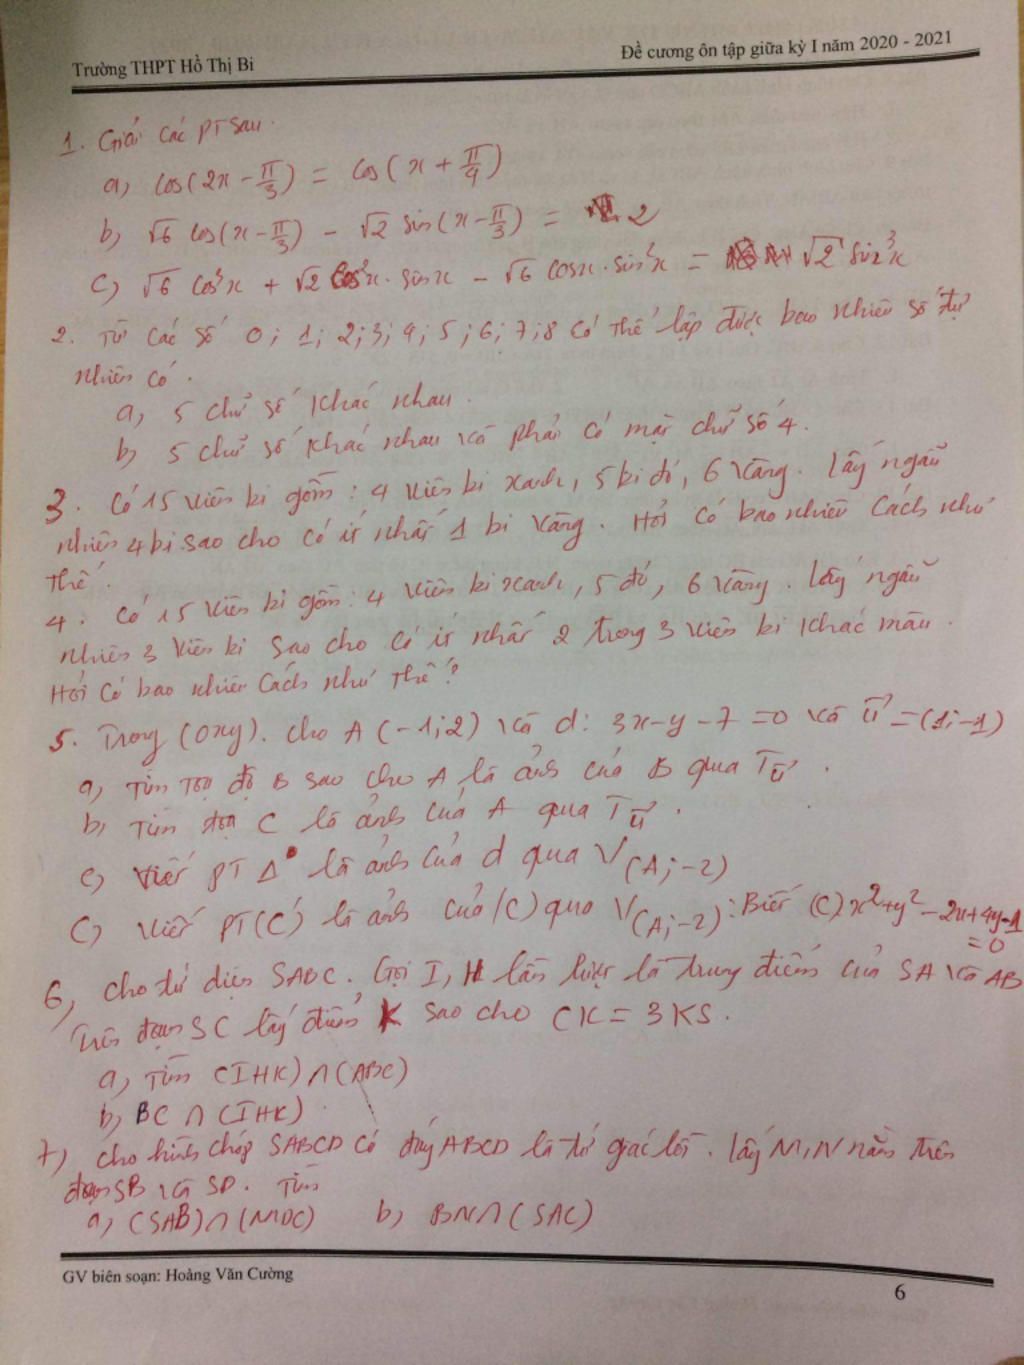 Trường THPT Hồ Thị Bi
Đề cương ôn tập giữa kỳ I năm 2020 - 2021
1. Giải các PT sau.
a) cos(2x - π/3) = cos(x + π/4)
b) √6 cos(x - π/3) - √2 sin(x - π/3) = 2
c) √6 cos³x + √2 cos²x. sinx - √6 cosx. sin²x = √2 sin³x
2. Từ các số 0; 1; 2; 3; 4; 5; 6; 7; 8 có thể lập được bao nhiêu số tự
nhiên có.
a) 5 chữ số khác nhau.
b) 5 chữ số khác nhau và phải có mặt chữ số 4.
3. Có 15 viên bi gồm: 4 viên bi xanh, 5 bi đỏ, 6 vàng. Lấy ngẫu
nhiên 4 bi sao cho có ít nhất 1 bi vàng. Hỏi có bao nhiêu cách như
thế.
4. Có 15 viên bi gồm: 4 viên bi xanh, 5 đỏ, 6 vàng. Lấy ngẫu
nhiên 3 viên bi sao cho có ít nhất 2 trong 3 viên bi khác màu.
Hỏi có bao nhiêu cách như thế?
5. Trong (Oxy). cho A(-1;2) và d: 3x-y-7=0 và u⃗=(1;-1)
a) Tìm toạ độ B sao cho A là ảnh của B qua Tu⃗.
b) Tìm tọa C là ảnh của A qua Tu⃗.
c) Viết PT Δ là ảnh của d qua V(A;-2)
c) Viết PT(C') là ảnh của (C) qua V(A;-2): Biết (C) x²+y²-2x+4y-1
=0
6, cho tứ diện SABC. Gọi I, H lần lượt là trung điểm của SA và AB
Trên đoạn SC lấy điểm K sao cho CK = 3KS.
a) Tìm (IHK)∩(ABC)
b) BC ∩ (IHK)
7) cho hình chóp SABCD có đáy ABCD là tứ giác lồi. Lấy M,N nằm trên
đoạn SB và SD. Tìm
a) (SAB)∩(MDC) b) BN∩(SAC)
GV biên soạn: Hoàng Văn Cường
6